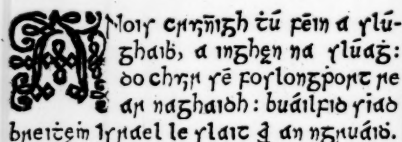 ANois cruin̄igh ṫú féin a slú-
ghaiḃ, a inghen na slúaġ:
do chuir sé foslongṗort re
ar naghaidh: buáilfid siad
breiṫeṁ Israel le slait ar an ngruáiḋ.